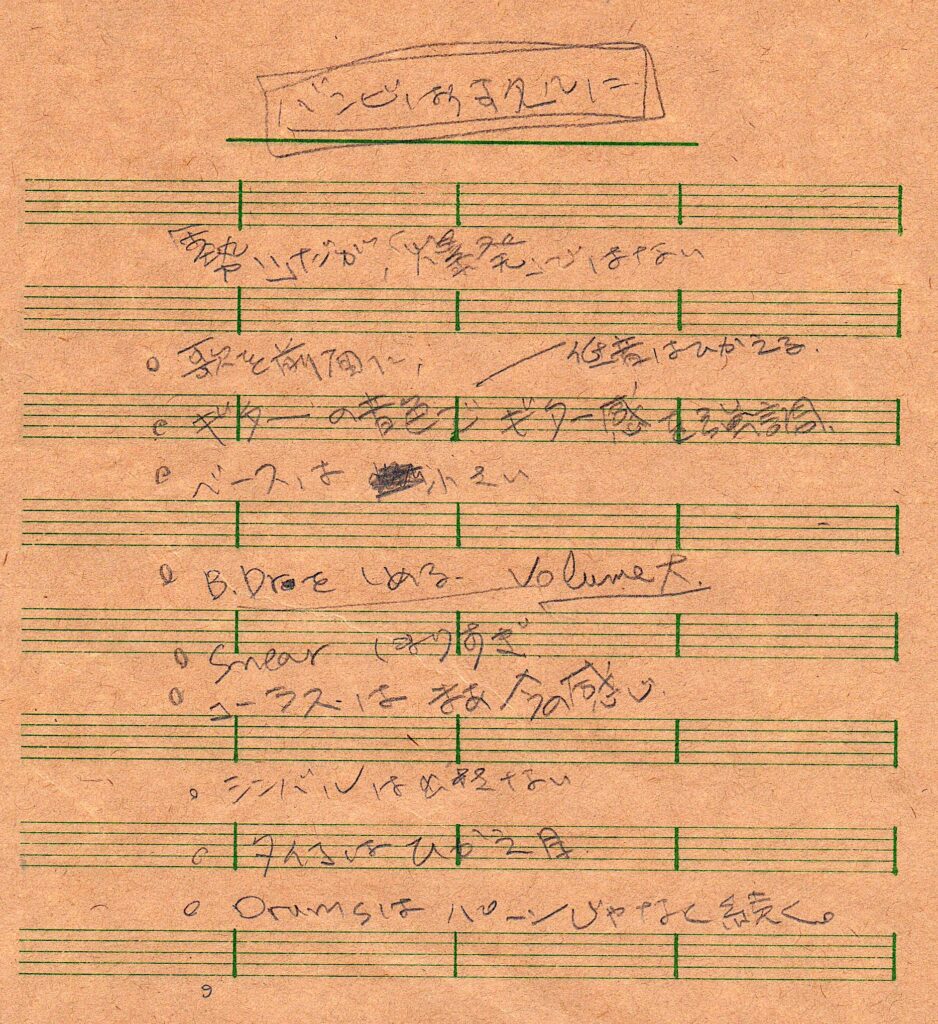 バンビは
「勢い」だが,「爆発」ではない
歌を前面に, はひかえる.
ギターの音色でギター感を強調.
ベースは 小さい
B.Drを しめる. Volume大.
Snear しぼりすぎ
コーラスは まあ今の感じ.
シンバルは必要ない
はひかえ目
Drumsは バーンじゃなく続く。
9